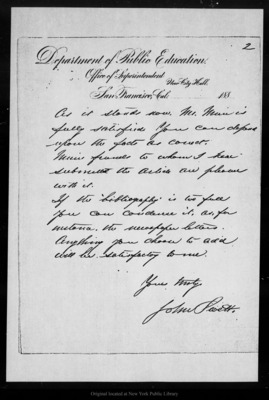 2
Department of Public Education,
Office of Superintendent
New City Hall,
San Francisco, Cal. 188
As it stands now, Mr. Muir is
fully satisfied. You can depend
upon the facts as correct.
Muir's friends to whom I have
submitted the article are pleased
with it.
If the "bibliography" is too full
you can condense it, as, for
instance, the newspaper letters.
Anything you choose to add
will be satisfactory to me.
Yours truly,
John Swett.
Original located at New York Public Library